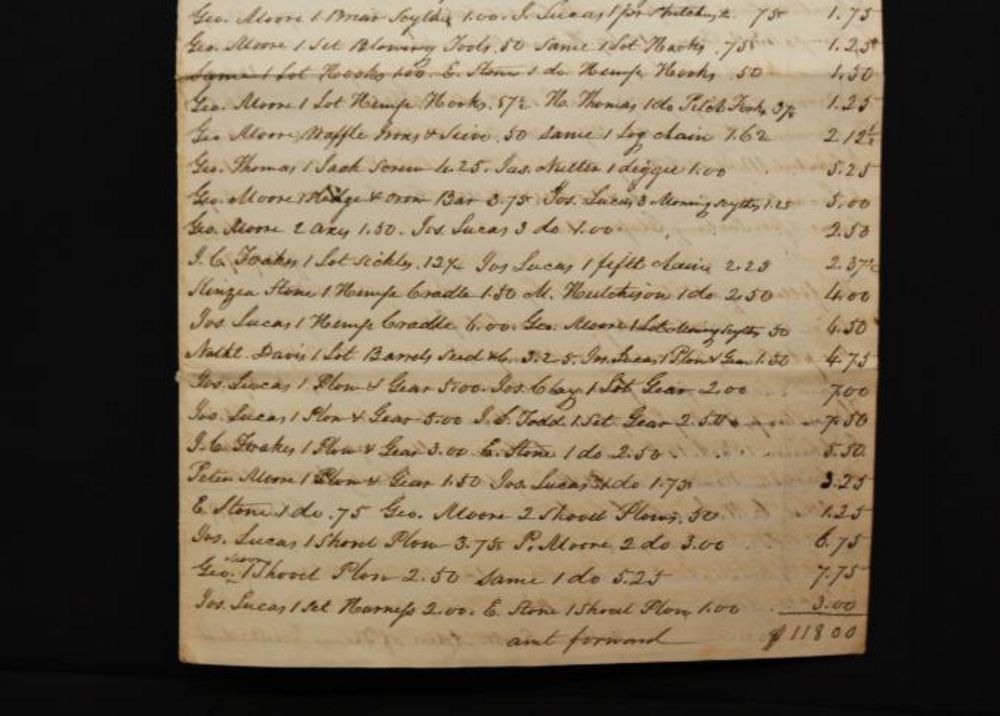 Geo. Moore 1 Briar Scythe 1.00. J. Lucas 1 pr 75 1.75
Geo. Moore 1 Set Blowing Tools .50 Same 1 Lot Hooks .75 1.25
Same 1 Lot Hooks 1.00. E. Stone 1 do Hemp Hooks .50 1.50
Geo. Moore 1 Lot Hemp Hooks. 87½ H. Thomas 1 do Pitch Forks 37½ 1.25
Geo Moore Waffle Irons & Sieve .50 Same 1 Log chain 1.62 2.12½
Geo. Thomas 1 Jack Screw 4.25. Jas. Nutter 1 digger 1.00 5.25
Geo. Moore Sledge & Crow Bar 3.75 Jos. Lucas 3 Scythes 1.25 5.00
Geo. Moore 2 axes 1.50. Jos. Lucas 3 do 1.00 2.50
J. C. Frakes 1 Lot Sickles .12½ Jos Lucas 1 fifth chain 2.25 2.37½
Stone 1 Hemp Cradle 1.50 M. Hutchison 1 do 2.50 4.00
Jos. Lucas 1 Hemp Cradle 6.00. Geo. Moore 1 Lot Scythes 50 6.50
Nathl. Davis 1 Lot Barrels Seed &c. 3.25. Jos. Lucas 1 Plow & Gear 1.50 4.75
Jos. Lucas 1 Plow & Gear 5.00. Jos. Clay 1 Lot Gear 2.00 7.00
Jos. Lucas 1 Plow & Gear 5.00 J. C. Todd 1 Set Gear 2.50 7.50
J. C. Frakes 1 Plow & Gear 3.00 E. Stone 1 do 2.50 5.50
Peter Moore 1 Plow & Gear 1.50 Jos. Lucas do 1.75 3.25
E. Stone 1 do .75 Geo. Moore 2 Shovel Plows. 50 1.25
Jos. Lucas 1 Shovel Plow 3.75 P. Moore 2 do 3.00 6.75
Geo. Moore 1 Shovel Plow 2.50 Same 1 do 5.25 7.75
Jos. Lucas 1 Set Harness 2.00. E. Stone 1 Shovel Plow 1.00 3.00
amt forward $118 00